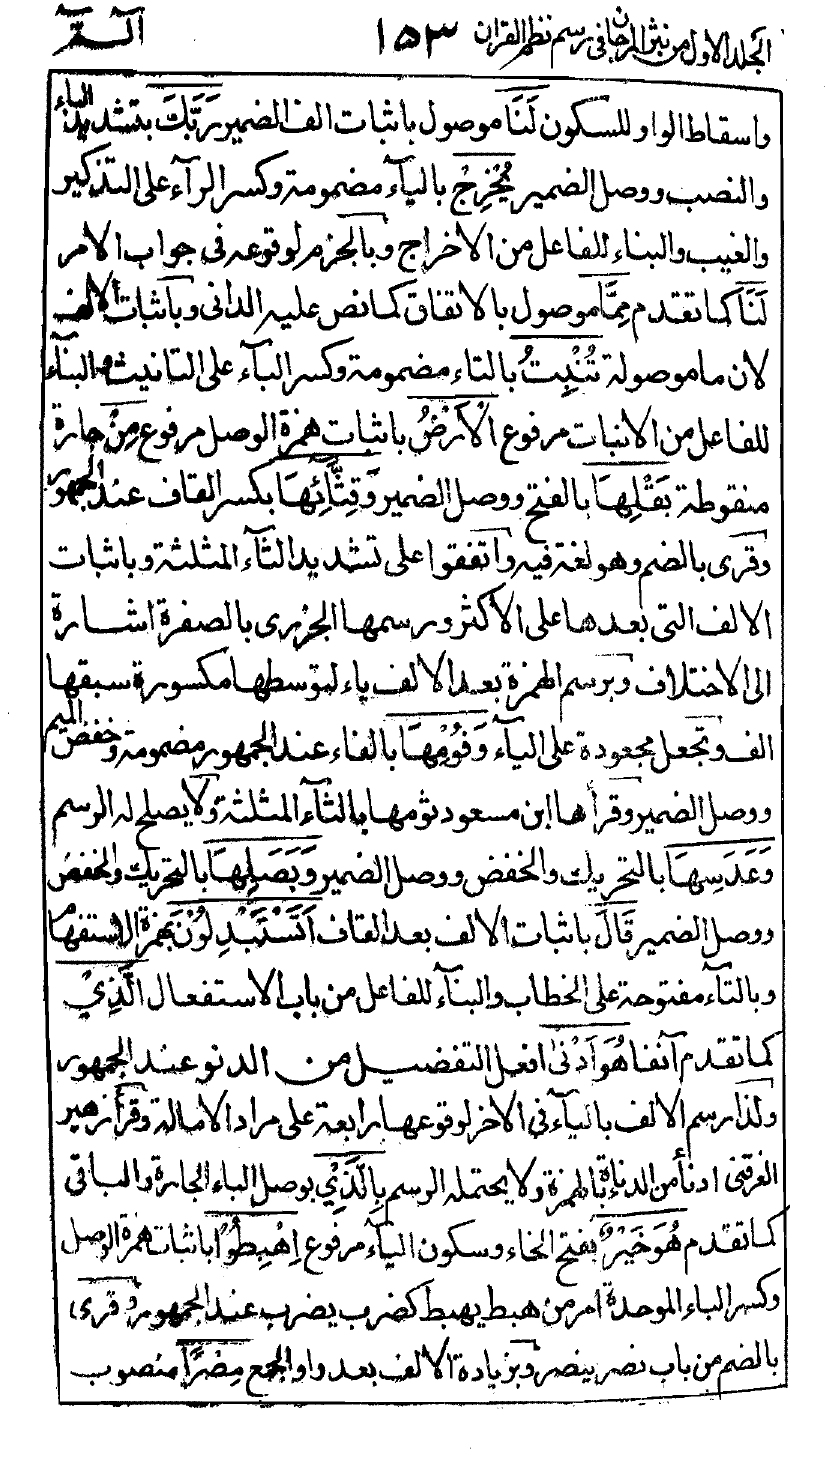 المجلد الاول من نثر المرجان في رسم نظم القران ١٥٣ الٓـمّٓ
واسقاط الواو للسكون لَنَا موصول باثبات الف الضمير رَبَّكَ بتشديد الباء
والنصب ووصل الضمير يُخْرِجْ بالياء مضمومة وكسر الراء على التذكير
والغيب والبناء للفاعل من الاخراج وبالجزم لوقوعه فى جواب الامر
لَنَا كما تقدم مِمَّا موصول بالاتفاق كما نص عليه الدانى وباثبات الالف
لان ما موصولة تُنْبِتُ بالتاء مضمومة وكسر الباء على التانيث والبناء
للفاعل من الانبات مرفوع الْأَرْضُ باثبات همزة الوصل مرفوع مِنْ جارة
منقوطة بَقْلِهَا بالفتح ووصل الضمير وَقِثَّائِهَا بكسر القاف عند الجمهور
وقرى بالضم وهو لغة فيه واتفقوا على تشديد الثاء المثلثة وباثبات
الالف التى بعدها على الاكثر ورسمها الجزرى بالصفرة اشارة
الى الاختلاف وبرسم الهمزة بعد الالف ياء لتوسطها مكسورة سبقها
الف وتجعل مجعودة على الياء وَفُوْمِهَا بالفاء عند الجمهور مضمومة وخفض الميم
ووصل الضمير وقرأها ابن مسعود ثومها بالثاء المثلثة ولا يصلح له الرسم
وَعَدَسِهَا بالتحريك والخفض ووصل الضمير وَبَصَلِهَا بالتحريك والخفض
ووصل الضمير قَالَ باثبات الالف بعد القاف اَتَسْتَبْدِلُوْنَ بهمزة الاستفهام
وبالتاء مفتوحة على الخطاب والبناء للفاعل من باب الاستفعال الَّذِيْ
كما تقدم آنفا هُوَ اَدْنٰى افعل التفضيل من الدنو عند الجمهور
ولذا رسم الالف بالياء فى الاخر لوقوعها رابعة على مراد الامالة وقرأ زهير
الفرقبى ادنأ من الدناءة بالهمزة ولا يحتمله الرسم بِالَّذِيْ بوصل الباء الجارة والباقى
كما تقدم هُوَ خَيْرٌ بفتح الخاء وسكون الياء مرفوع اِهْبِطُوْا باثبات همزة الوصل
وكسر الباء الموحدة امر من هبط يهبط كضرب يضرب عند الجمهور وقرى
بالضم من باب نصر ينصر وبزيادة الالف بعد واو الجمع مِصْرًا منصوب